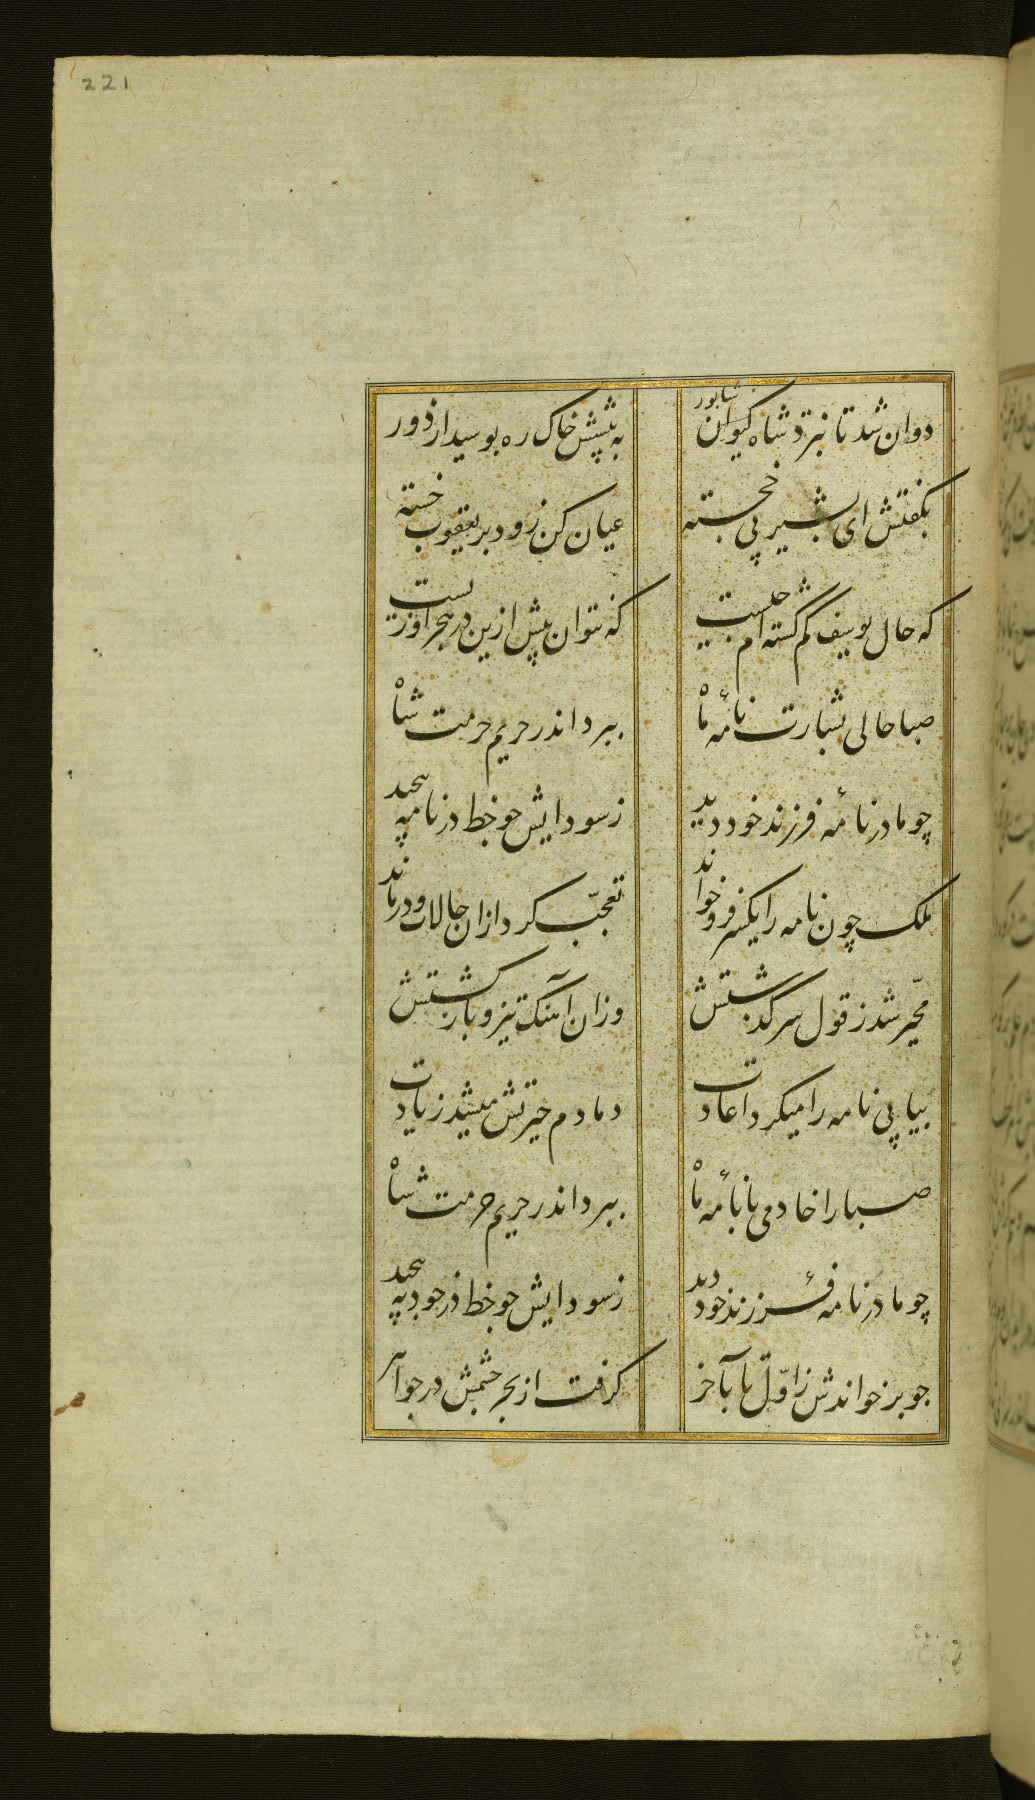 221
دوان شد تا نبزد شاه کیوان شابور به پیشش خاک ره بوسید از دور
بگفتش ای بشیر پی خجسته عیان کن زود بر یعقوب خسته
که حال یوسف گم گشته ام چیست که نتوان پیش ازین در هجر او زیست
صبا حالی بشارت نامهٔ ماه ببرد اندر حریم حرمت شاه
چو مادر نامهٔ فرزند خود دید ز سودایش چو خط در نامه پیچید
ملک چون نامه را یکسر فرو خواند تعجّب کرد ازان حالات و درماند
محیّر شد ز قول سرگذشتش وزان آهنگ تیز و بازگشتش
بیاپی نامه را میکرد اعادت دمادم حیرتش میشد زیادت
صبا را خادمی با نامهٔ ماه ببرد اندر حریم حرمت شاه
چو مادر نامهٔ فرزند خود دید ز سودایش چو خط در خود بپیچید
چو برخواندش ز اوّل تا بآخر گرفت از بحر چشمش در جواهر